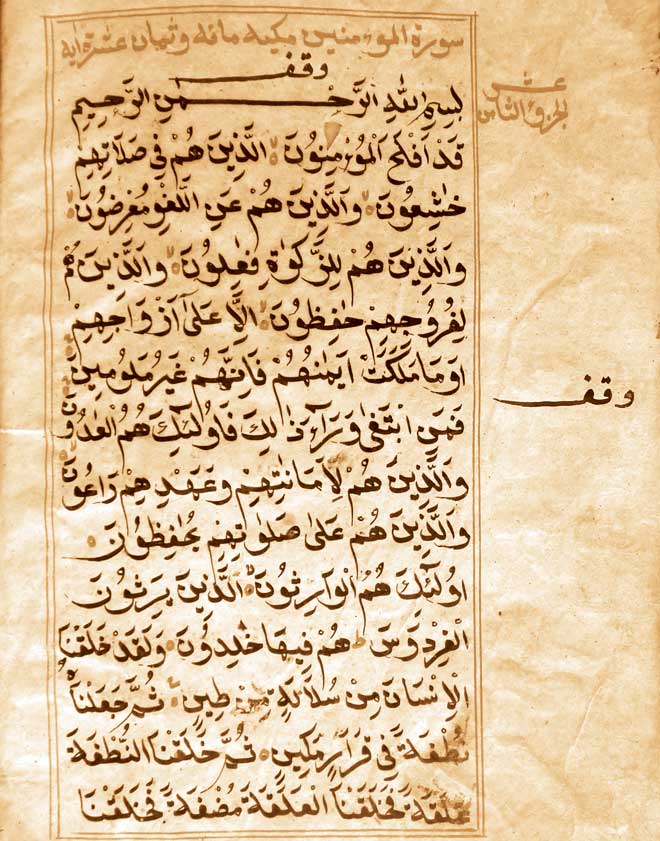 سورة المؤمنين مكية مائة وثمان عشرة اية
وقف
عشر
الجزؤ الثامن
بِسْمِ اللَّهِ الرَّحْمٰنِ الرَّحِيمِ
قَدْ اَفْلَحَ الْمُؤْمِنُونَ الَّذِينَ هُمْ فِي صَلَاتِهِمْ
خٰشِعُونَ وَالَّذِينَ هُمْ عَنِ اللَّغْوِ مُعْرِضُونَ
وَالَّذِينَ هُمْ لِلزَّكٰوةِ فٰعِلُونَ وَالَّذِينَ هُمْ
لِفُرُوجِهِمْ حٰفِظُونَ اِلَّا عَلٰى اَزْوَاجِهِمْ
اَوْ مَا مَلَكَتْ اَيْمٰنُهُمْ فَاِنَّهُمْ غَيْرُ مَلُومِينَ
وقف
فَمَنِ ابْتَغٰى وَرَآءَ ذٰلِكَ فَاُولٰئِكَ هُمُ الْعٰدُونَ
وَالَّذِينَ هُمْ لِاَمَانٰتِهِمْ وَعَهْدِهِمْ رَاعُونَ
وَالَّذِينَ هُمْ عَلٰى صَلَوٰتِهِمْ يُحٰفِظُونَ
اُولٰئِكَ هُمُ الْوَارِثُونَ الَّذِينَ يَرِثُونَ
الْفِرْدَوْسَ هُمْ فِيهَا خٰلِدُونَ وَلَقَدْ خَلَقْنَا
الْاِنْسَانَ مِنْ سُلَالَةٍ مِنْ طِينٍ ثُمَّ جَعَلْنٰهُ
نُطْفَةً فِي قَرَارٍ مَكِينٍ ثُمَّ خَلَقْنَا النُّطْفَةَ
عَلَقَةً فَخَلَقْنَا الْعَلَقَةَ مُضْغَةً فَخَلَقْنَا